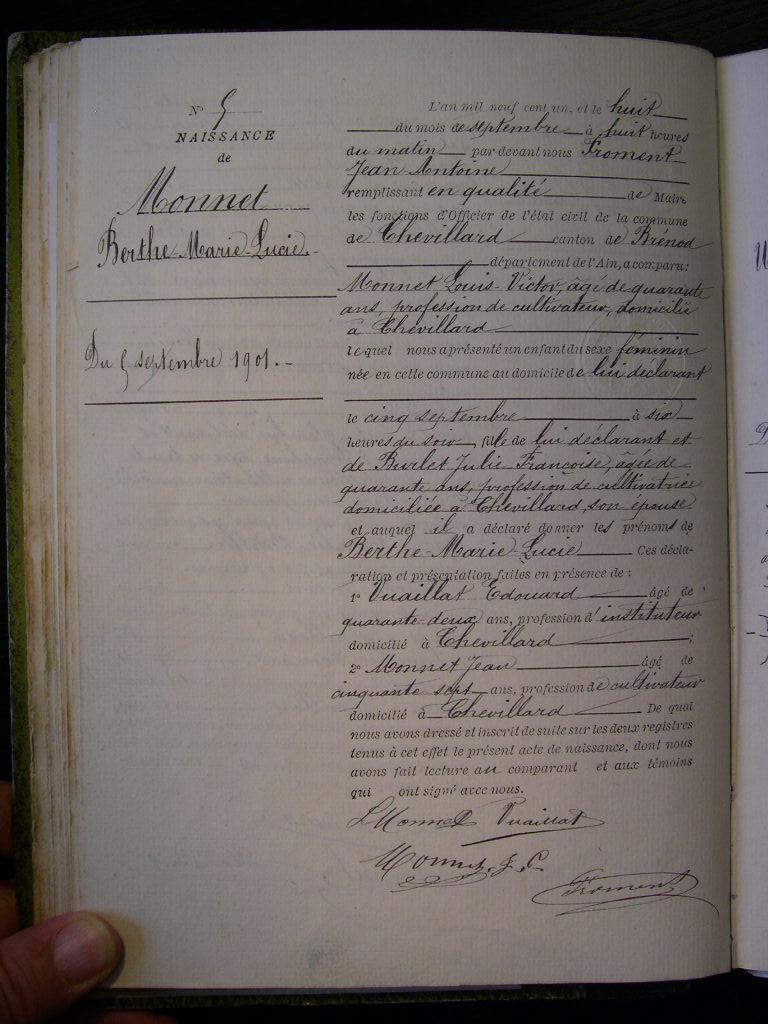 N° 5
NAISSANCE
de
Monnet
Berthe-Marie-Lucie.
Du 5 septembre 1901.
L'an mil neuf cent un, et le huit
du mois de septembre à huit heures
du matin par-devant nous Froment
Jean-Antoine
remplissant en qualité de Maire
les fonctions d'Officier de l'état civil de la commune
de Chevillard canton de Brénod
département de l'Ain, a comparu:
Monnet Louis-Victor, âgé de quarante
ans, profession de cultivateur, domicilié
à Chevillard
lequel nous a présenté un enfant du sexe féminin
née en cette commune au domicile de lui déclarant
le cinq septembre à six
heures du soir, fille de lui déclarant et
de Burlet Julie Francoise, âgée de
quarante ans, profession de cultivatrice
domiciliée à Chevillard, son épouse
et auquel il a déclaré donner les prénoms de
Berthe-Marie-Lucie Ces décla-
ration et présentation faites en présence de :
1° Vuaillat Edouard âgé de
quarante-deux ans, profession d'instituteur
domicilié à Chevillard ;
2° Monnet Jean âgé de
cinquante sept ans, profession de cultivateur
domicilié à Chevillard De quoi
nous avons dressé et inscrit de suite sur les deux registres
tenus à cet effet le présent acte de naissance, dont nous
avons fait lecture au comparant et aux témoins
qui ont signé avec nous.
L Monnet Vuaillat
Monnet J. P.
Froment